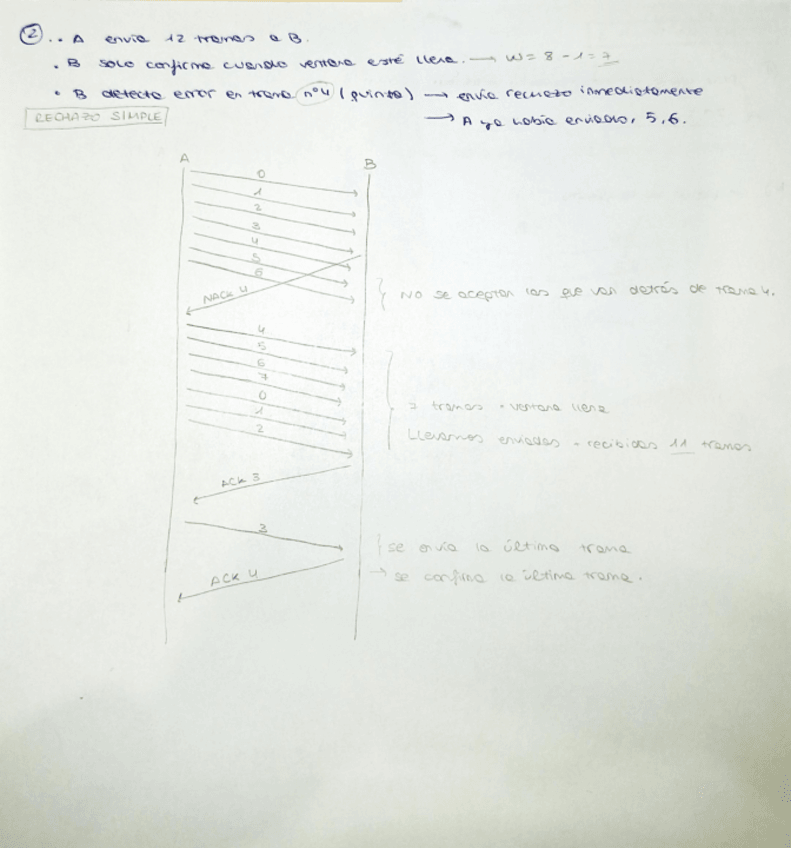 2.. A envia 12 tramas a B.
. B solo confirma cuando ventana esté llena. → W = 8 - 1 = 7
• B detecta error en trama nº4 (quinta) → envia rechazo inmediatamente
→ A ya había enviado, 5, 6.
RECHAZO SIMPLE
A B
0
1
2
3
4
5
6
NACK 4
NO se aceptan las que van detrás de trama 4.
4
5
6
7
0
1
2
7 tramas - ventana llena
Llevamos enviadas - recibidas 11 tramas
ACK 3
3
se envía la última trama
ACK 4
→ se confirma la última trama.